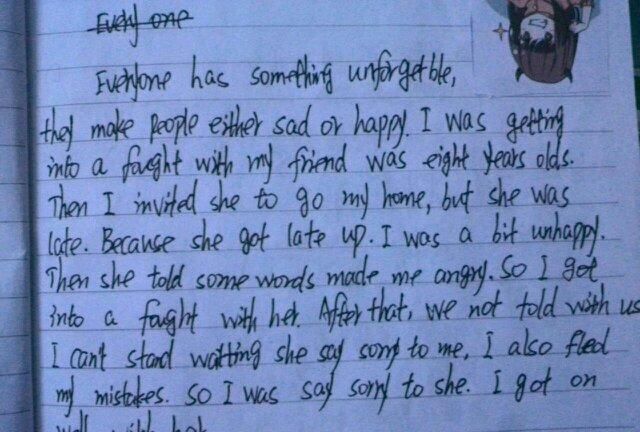 Every one
Everyone has something unforgetble,
they make people either sad or happy. I was getting
into a faught with my friend was eight years olds.
Then I invited she to go my home, but she was
late. Because she got late up. I was a bit unhappy.
Then she told some words made me angry. So I got
into a faught with her. After that, we not told with us
I can't stand waitting she say sorry to me, I also fled
my mistakes. So I was say sorry to she. I got on
well with her